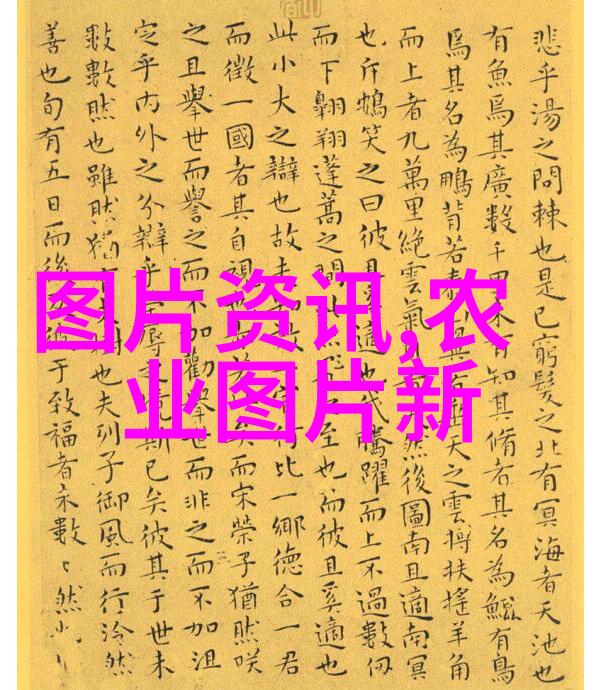 悲乎湯之問棘也是已窮髮之北有冥海者天池也
有魚焉其廣數千里未有知其脩者其名為鯤有鳥
焉其名為鵬背若泰翼若垂天之雲摶扶搖羊角
而上者九萬里絕雲氣然後圖南且適南冥
也斥鴳笑之曰彼且適也我騰躍而上不過數仞
而下翱翔蓬蒿之間此之至也而彼且奚適也
此小大之辯也故夫行比一鄉德合一君
而徵一國者其自視也矣而宋榮子猶然咲
之且舉世而譽之而不加勸舉世而非之而不加沮
定乎內外之分辯乎辱之境斯已矣彼其于世未
數數然也雖然猶也夫列子御風而行泠然
善也旬有五日而後彼于致福者未數〻然也
图片资讯,农
业图片新